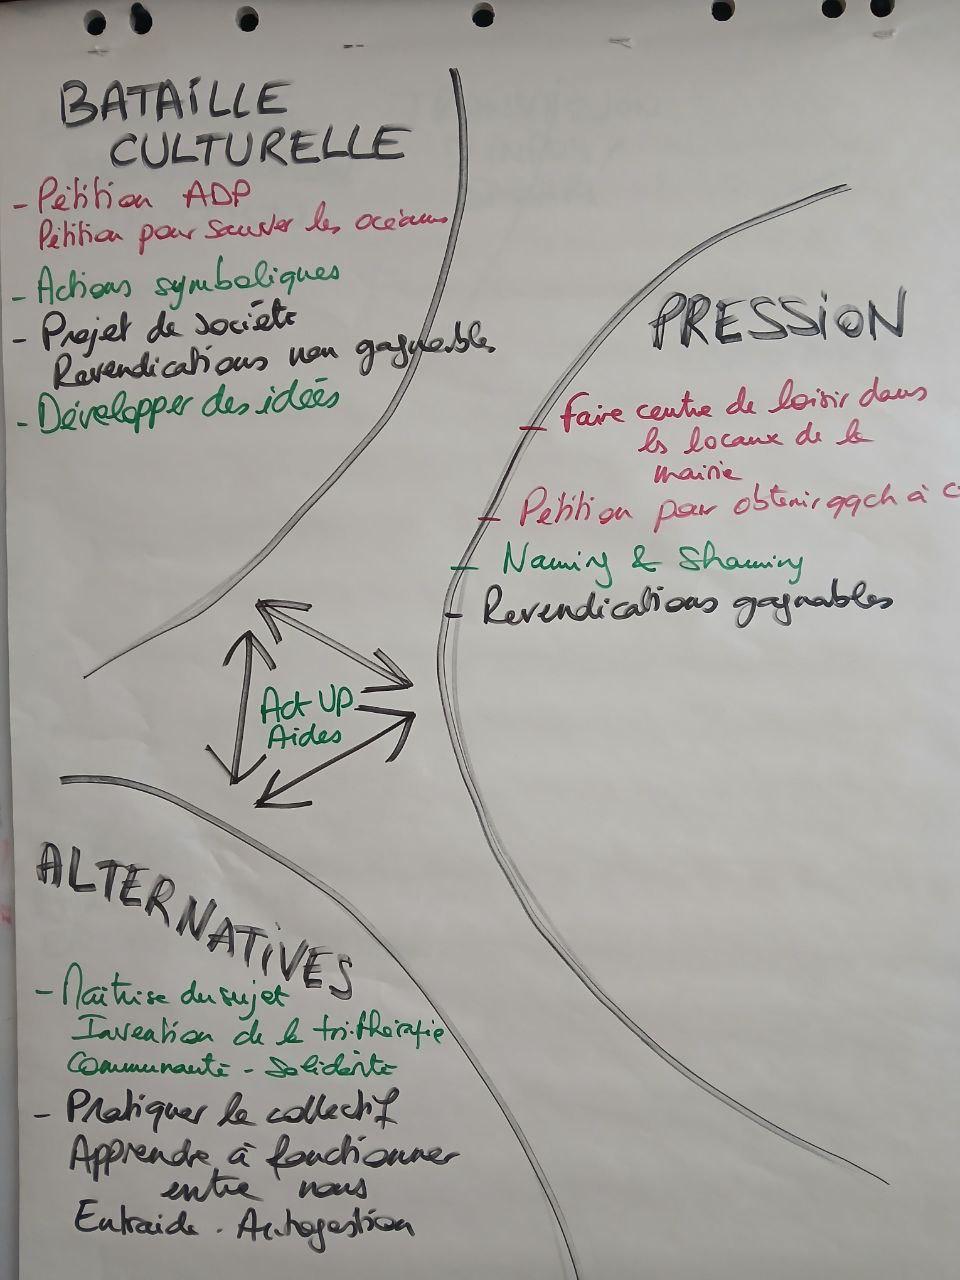 BATAILLE
CULTURELLE
- Pétition ADP
Pétition pour sauver les océans
- Actions symboliques
- Projet de société
Revendications non gagnables
- Développer des idées
PRESSION
- faire centre de loisir dans
les locaux de la
mairie
- Pétition pour obtenir qqch à
- Naming & Shaming
- Revendications gagnables
Act UP
Aides
ALTERNATIVES
- Maîtrise du sujet
Invention de la tri-thérapie
Communauté - Solidarité
- Pratiquer le collectif
Apprendre à fonctionner
entre nous
Entraide - Autogestion